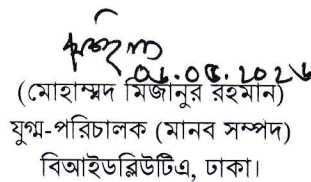 ০৬.০৫.২০২৬
(মোহাম্মদ মিজানুর রহমান)
যুগ্ম-পরিচালক (মানব সম্পদ)
বিআইডব্লিউটিএ, ঢাকা।